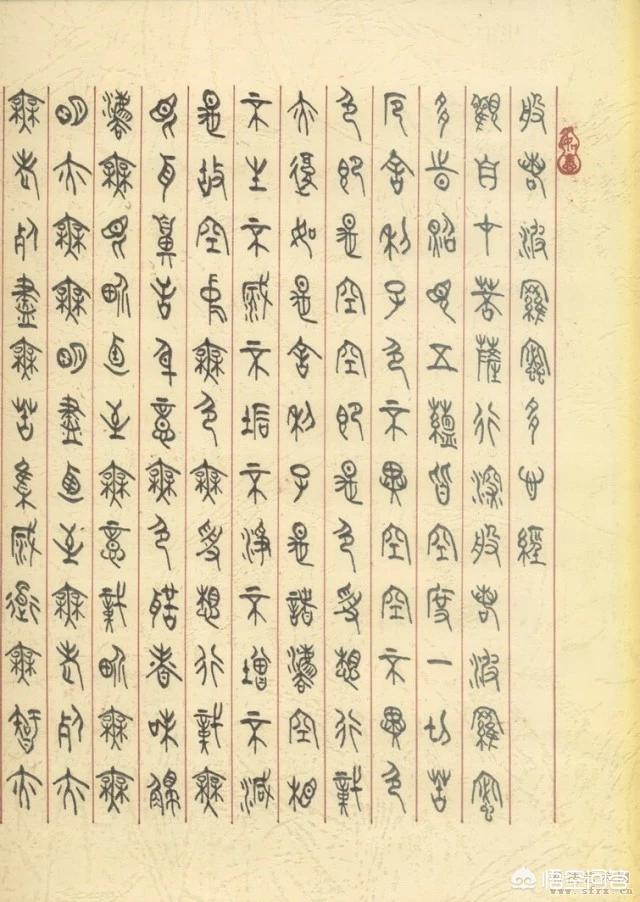 般若波羅蜜多心經
觀自在菩薩行深般若波羅蜜
多時照見五蘊皆空度一切苦
厄舍利子色不異空空不異色
色即是空空即是色受想行識
亦復如是舍利子是諸法空相
不生不滅不垢不淨不增不減
是故空中無色無受想行識無
眼耳鼻舌身意無色聲香味觸
法無眼界乃至無意識界無無
明亦無無明盡乃至無老死亦
無老死盡無苦集滅道無智亦
悟空问答